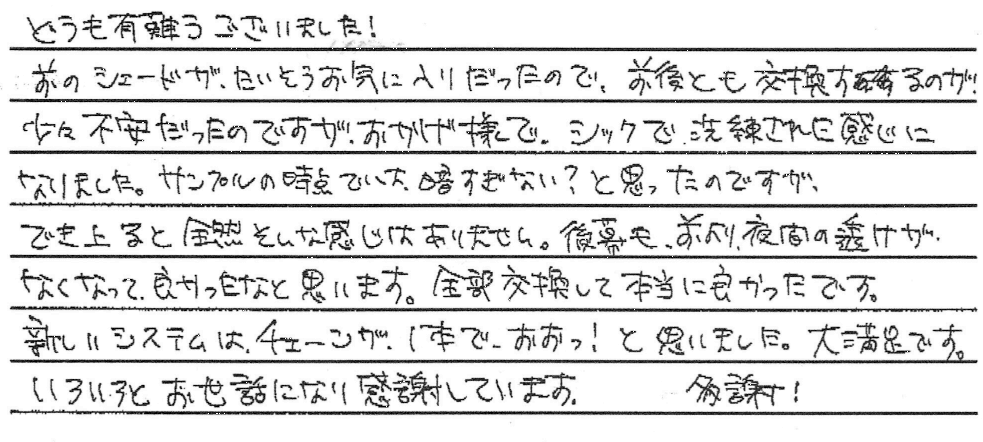 どうも有難うございました!
前のシェードが、たいそうお気に入りだったので、前後とも交換するのが
少々不安だったのですが、おかげ様で、シックで洗練された感じに
なりました。サンプルの時点では、暗すぎない?と思ったのですが、
でき上ると全然そんな感じはありません。後幕も、前より、夜間の透けが
なくなって、良かったなと思います。全部交換して本当に良かったです。
新しいシステムは、チェーンが、1本で、おおっ!と思いました。大満足です。
いろいろとお世話になり感謝しています。 多謝!